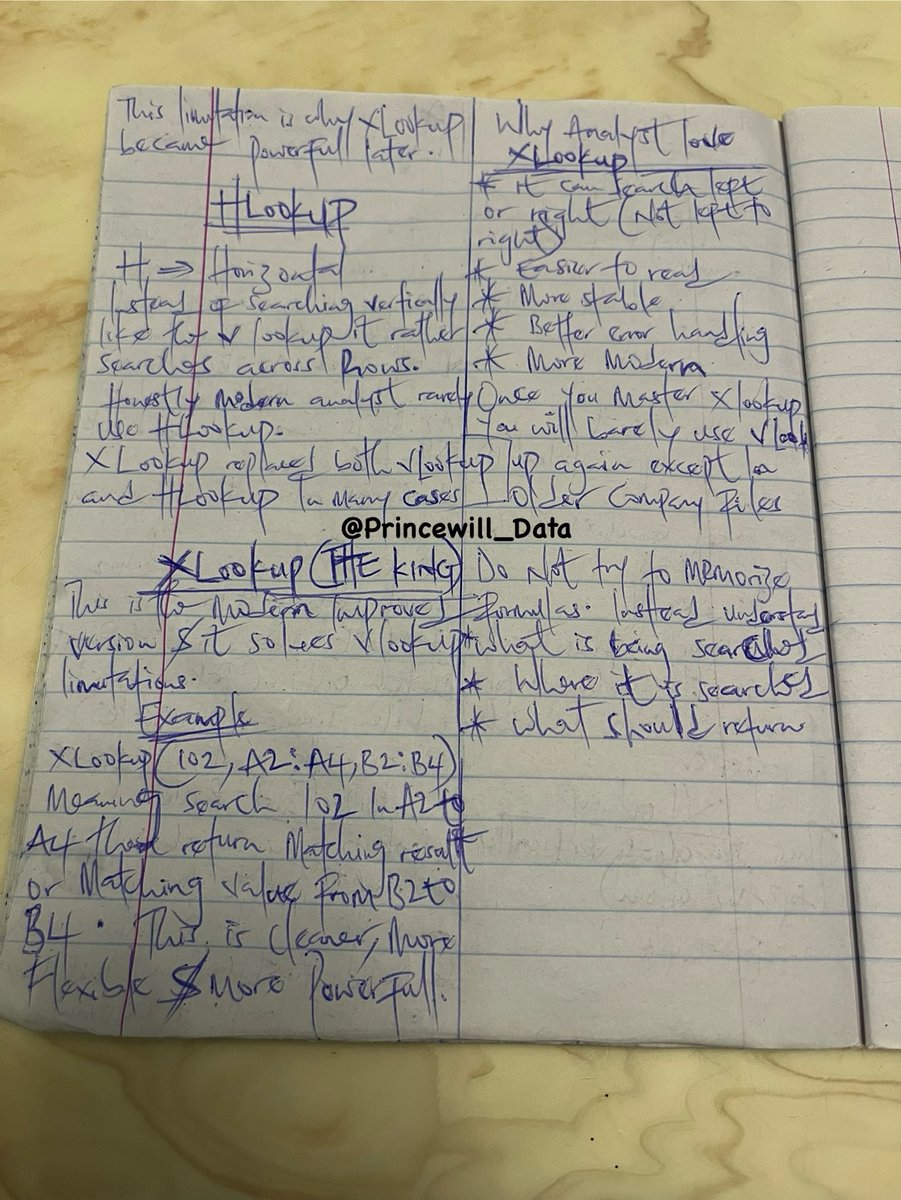 This limitation is why XLookup
became powerfull later.
HLookup
H ⇒ Horizontal
Instead of searching vertically
like the vlookup it rather
searches across Rows.
Honestly modern analyst rarely
use HLookup.
XLookup replaced both vlookup
and HLookup In many cases
@Princewill_Data
XLookup (THE KING)
This is the Modern Improved
version & it solves vlookup
limitations.
Example
XLookup (102, A2:A4, B2:B4)
Meaning search 102 In A2 to
A4 then return Matching result
or Matching value From B2 to
B4. This is cleaner, More
Flexible & More Powerfull.
Why Analyst love
XLookup
* it can search left
or right (Not left to
right)
* Easier to read
* More stable
* Better error handling
* More Modern
Once You Master Xlookup
You will barely use vlook
up again except In
Older Company Files
Do Not try to Memorize
Formulas. Instead understand
* what is being searched
* Where it is searched
* what should return